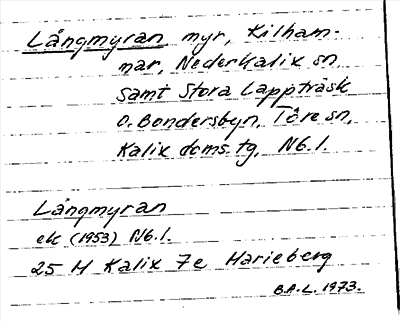 Långmyran myr, Kilham-
mar, Nederkalix sn,
samt Stora Lappträsk
o. Bondersbyn, Töre sn,
Kalix doms. tg, Nb.l.
Långmyran
ek (1953) Nb.l.
25 M Kalix 7e Marieberg
B.A.L. 1973.